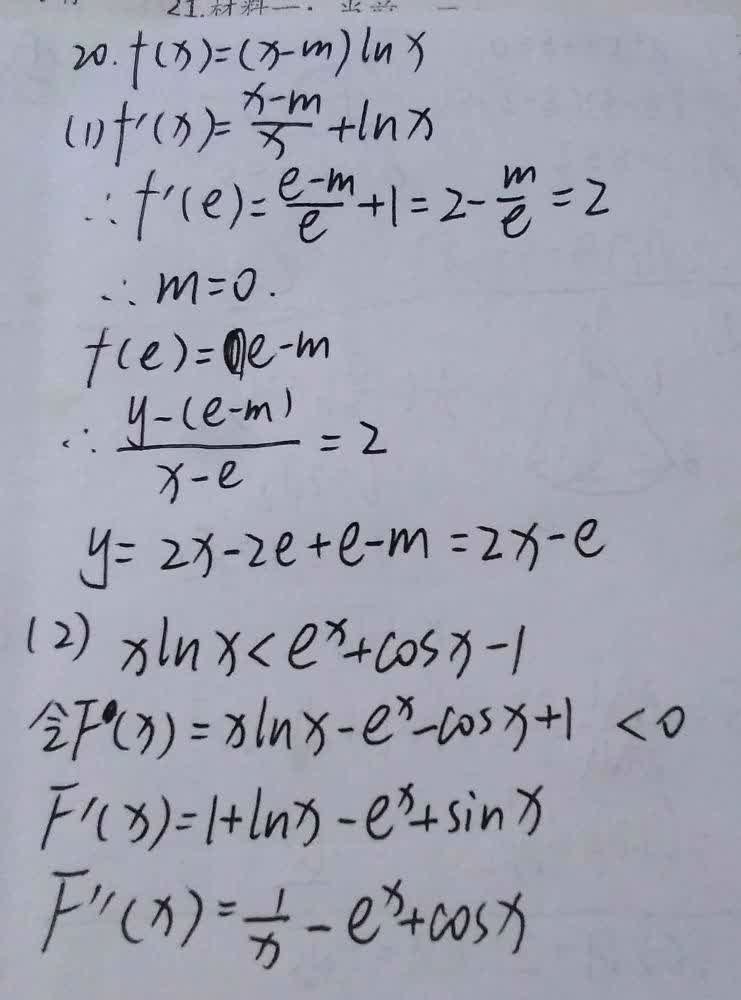 21.材料一:
20. f(x)=(x-m)lnx
(1) f'(x)=\frac{x-m}{x}+lnx
∴ f'(e)=\frac{e-m}{e}+1=2-\frac{m}{e}=2
∴ m=0.
f(e)=e-m
∴ \frac{y-(e-m)}{x-e}=2
y=2x-2e+e-m=2x-e
(2) xlnx<e^x+cosx-1
令F(x)=xlnx-e^x-cosx+1 <0
F'(x)=1+lnx-e^x+sinx
F''(x)=\frac{1}{x}-e^x+cosx